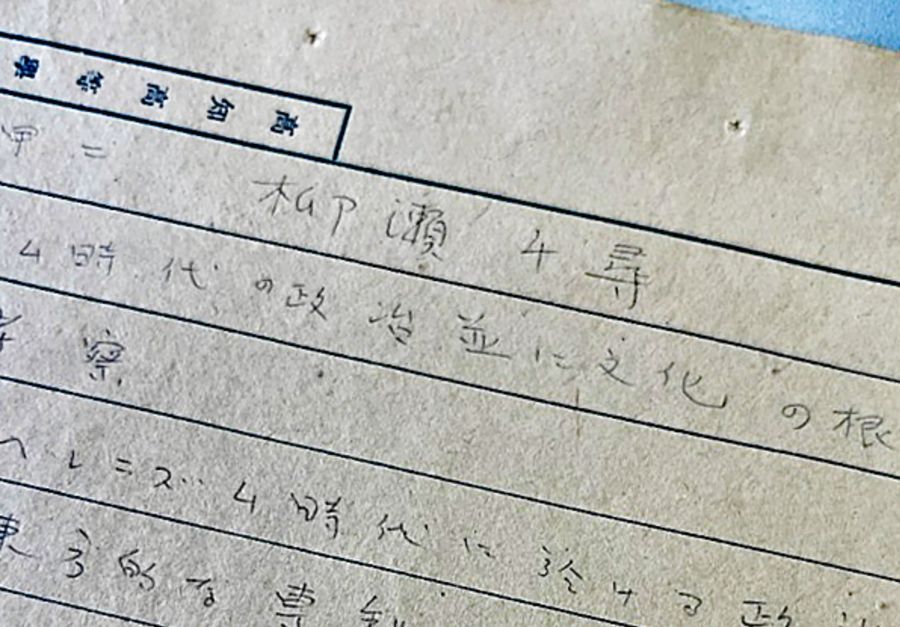 甲二 柳瀬 千尋
ム時代の政治並に文化の根
考察
ヘレニズム時代に於ける政治
東方的な専制